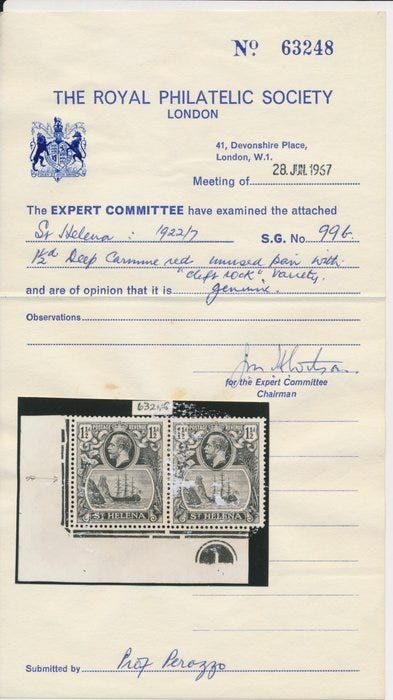 No 63248
THE ROYAL PHILATELIC SOCIETY
LONDON
41, Devonshire Place,
London, W.1.
28 JUN 1967
Meeting of
The EXPERT COMMITTEE have examined the attached
St Helena : 1922/7 S.G. No. 99b.
1½d Deep Carmine red unused pair with
"cleft rock" variety.
and are of opinion that it is genuine.
Observations
for the Expert Committee
Chairman
63248
1½ POSTAGE & REVENUE 1½
1½ POSTAGE & REVENUE 1½
ST HELENA
ST HELENA
1
Submitted by Prof Perozzo